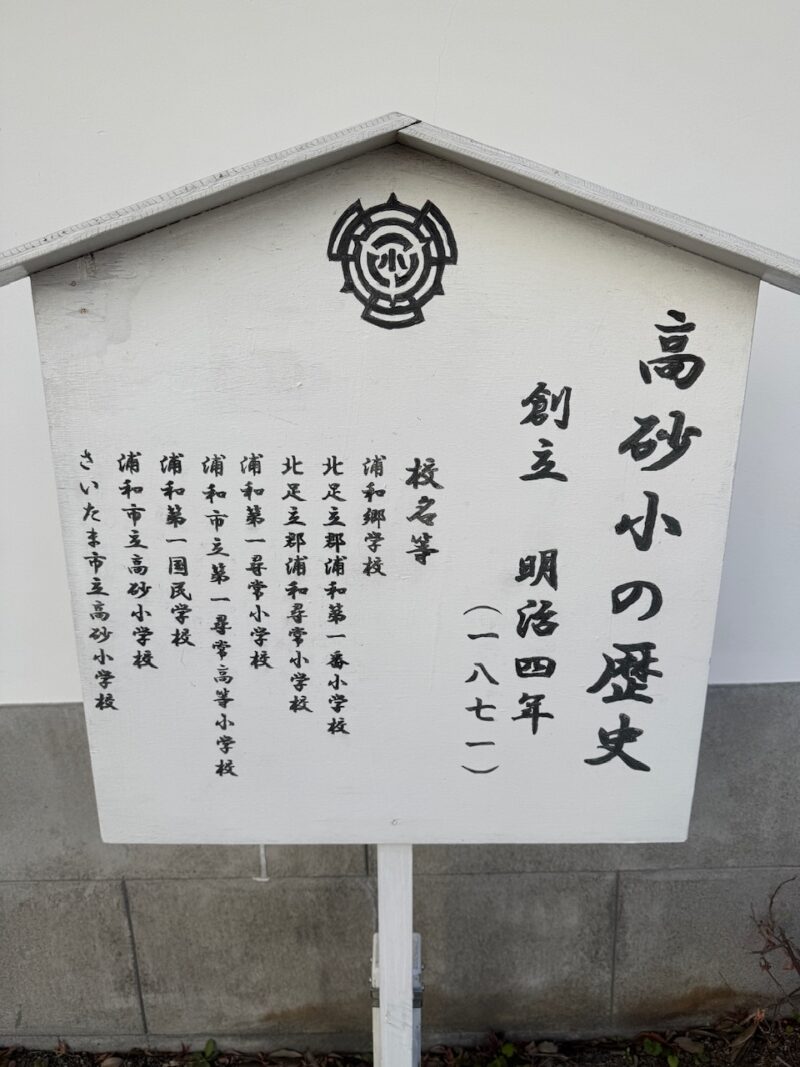 高砂小の歴史
創立 明治四年
（一八七一）
校名等
浦和郷学校
北足立郡浦和第一番小学校
北足立郡浦和尋常小学校
浦和第一尋常小学校
浦和市立第一尋常高等小学校
浦和第一国民学校
浦和市立高砂小学校
さいたま市立高砂小学校
小